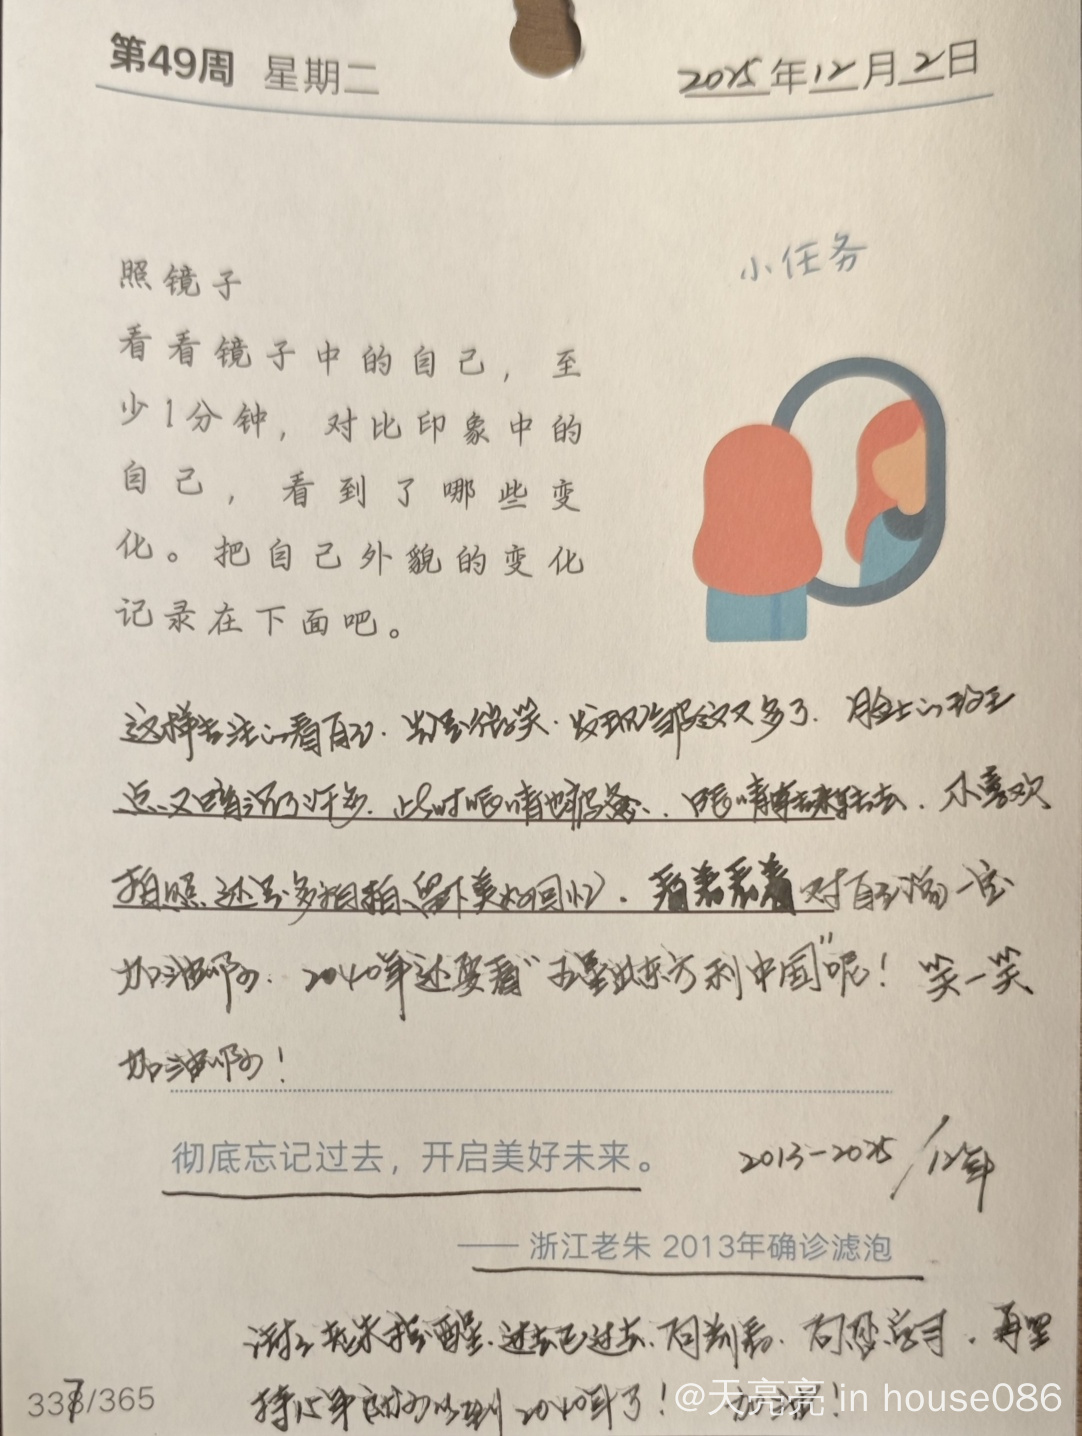 第49周 星期二 2025年12月2日
小任务
照镜子
看看镜子中的自己，至
少1分钟，对比印象中的
自己，看到了哪些变
化。把自己外貌的变化
记录在下面吧。
这样专注的看自己. 微笑. 发现皱纹又多了. 脸上的斑
点. 又增添了许多. 此时眼睛也疲惫. 眼睛转来转去. 不喜欢
拍照. 还是多拍拍. 留下美好回忆. 对自己说一定
加油啊. 2040年还要看"五星出东方利中国"呢! 笑一笑
加油啊!
彻底忘记过去，开启美好未来。 2013-2025/12年
—— 浙江老朱 2013年确诊滤泡
浙江老朱提醒. 过去已过去. 向前看. 学习. 再坚
持15年就可以到2040年了! 加油!
337/365
@天亮亮 in house086